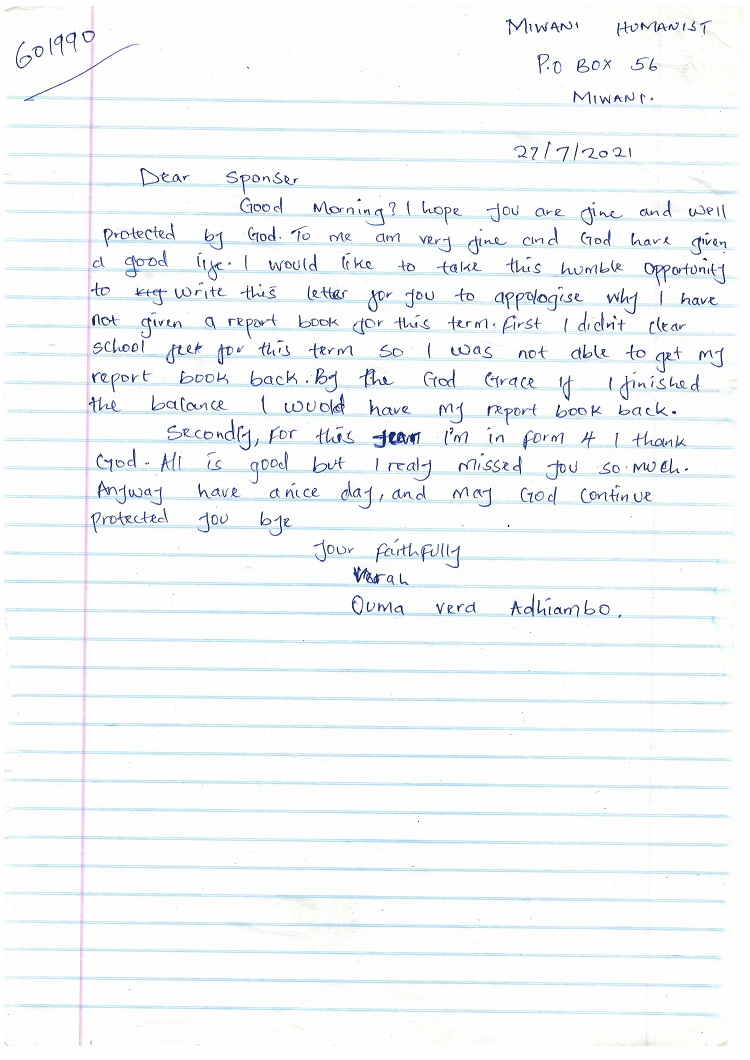 601990
MIWANI HUMANIST
P.O BOX 56
MIWANI.
27/7/2021
Dear Sponser
Good Morning? I hope you are fine and well
protected by God. To me am very fine and God have given
a good life. I would like to take this humble opportunity
to write this letter for you to appologise why I have
not given a report book for this term. First I didn't clear
school for this term so I was not able to get my
report book back. By the God Grace if I finished
the balance I would have my report book back.
Secondly, For this year I'm in form 4 I thank
God. All is good but I realy missed you so much.
Anyway have a nice day, and may God continue
protected you bye
Your Faithfully
Ouma vera Adhiambo.